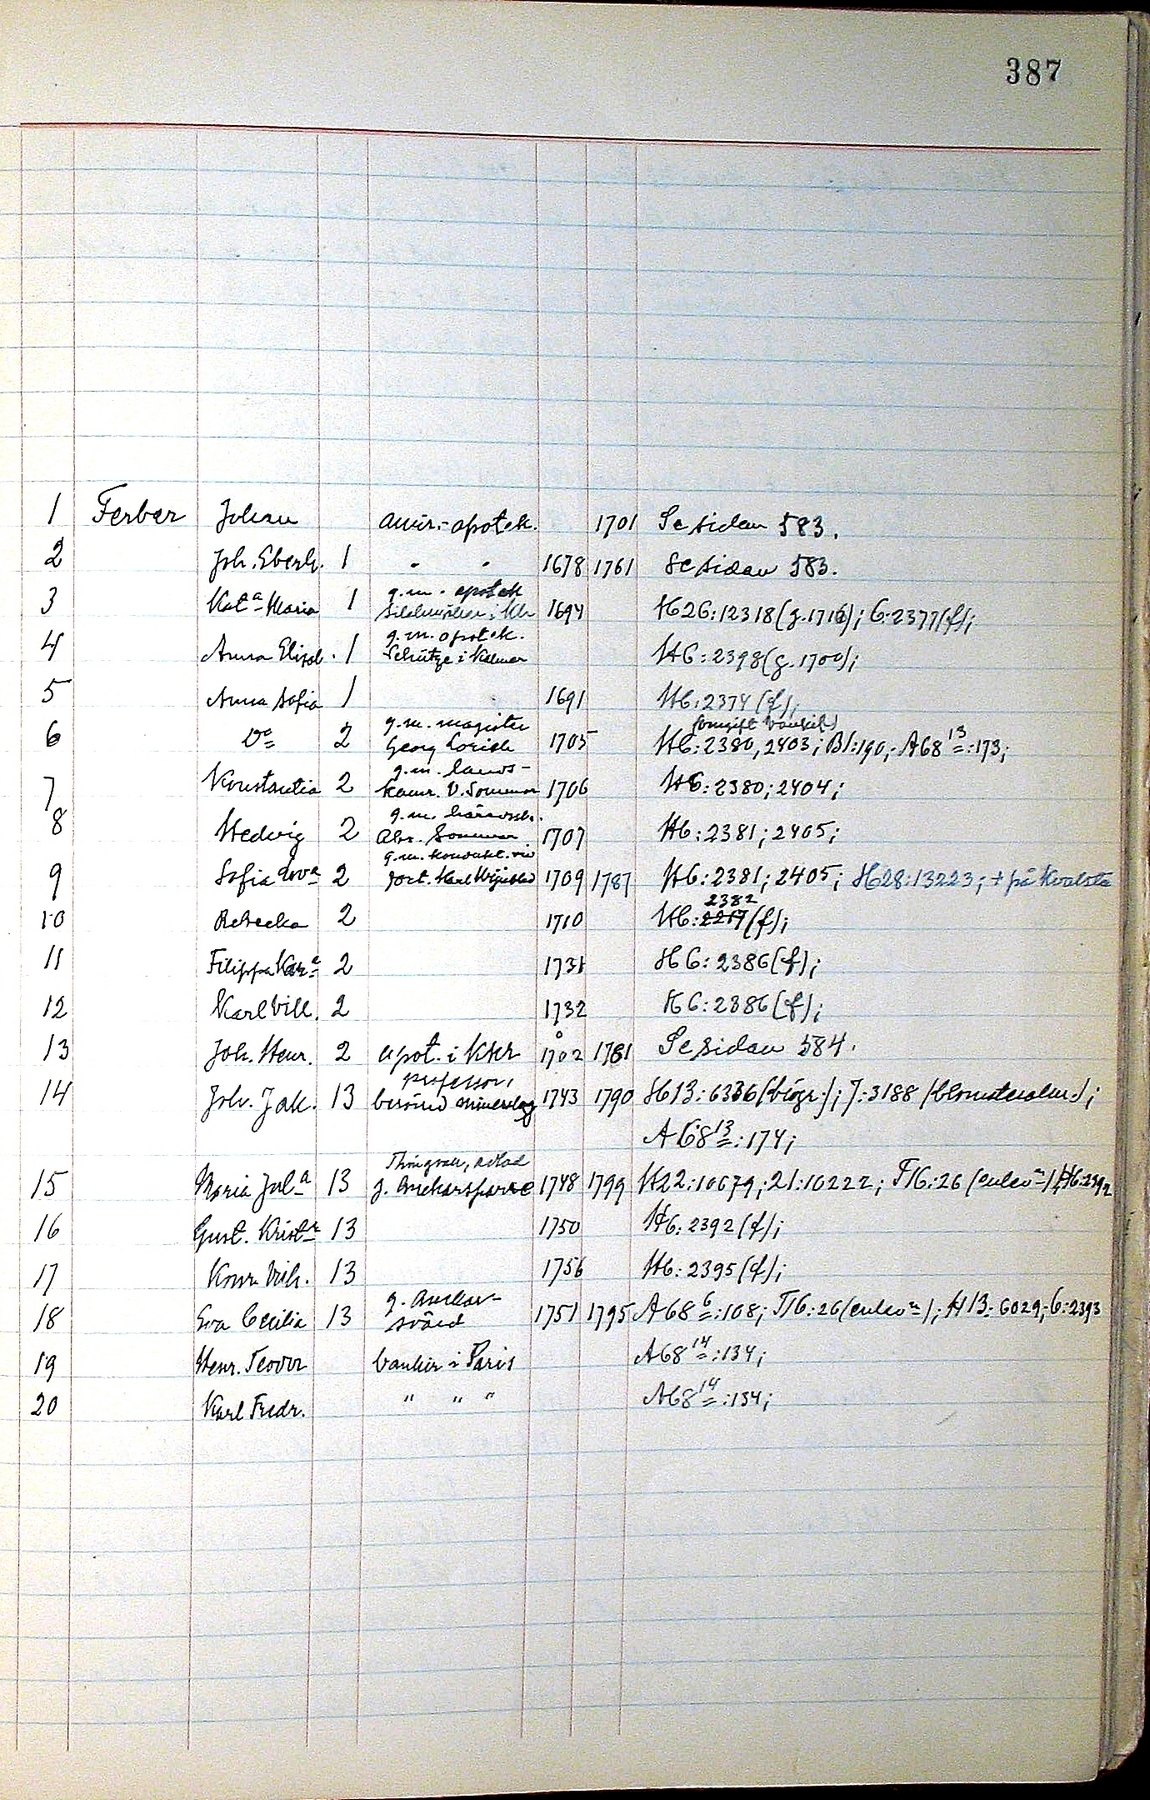 387
1 Ferber Johan amir.-apotek. 1701 Se sidan 583.
2 Joh. Eberh. 1 " " 1678 1761 Se sidan 583.
3 Kat<sup>a</sup> Maria 1 g.m. apotek i Kbr 1694 H26:12318 (g. 1716); 6:2377 (f);
4 Anna Elisab. 1 g.m. apotek. Schütze i Kalmar H6:2398 (g. 1700);
5 Anna Sofia 1 1691 H6:2374 (f);
6 D<sup>o</sup> 2 g.m. magister Georg 1705 H6:2380, 2403; B1:190; A68<sup>13</sup>:173;
7 Konstantia 2 g.m. lands- kamr. V. Sommar 1706 H6:2380; 2404;
8 Hedvig 2 g.m. häradsh. Abr. Sommar 1707 H6:2381; 2405;
9 Sofia Lov<sup>a</sup> 2 g.m. kondukt. vid fort. Karl 1709 1787 H6:2381; 2405; H28:13223; + på Kvalsta
10 Rebecka 2 1710 H6: 2382 (f);
11 Filippa Kar<sup>a</sup> 2 1731 H6:2386 (f);
12 Karl Vilh. 2 1732 H6:2386 (f);
13 Joh. Henr. 2 apot. i Kkr 1702 1781 Se sidan 584.
14 Joh. Jak. 13 professor, berömd mineralog 1743 1790 H13:6336 (biogr.); J:3188 ;
A68<sup>13</sup>:174;
15 Maria Jul<sup>a</sup> 13 adlad g. Anckarsparre 1748 1799 H22:10679; 21:10222; T16:26 ; H6:2392
16 Gust. Krist<sup>r</sup> 13 1750 H6:2392 (f);
17 Konr. Vilh. 13 1756 H6:2395 (f);
18 Eva Cecilia 13 g. Anckar- svärd 1751 1795 A68<sup>6</sup>:108; T16:26 ; H13:6029; 6:2393
19 Henr. Teodor bankir i Paris A68<sup>14</sup>:134;
20 Karl Fredr. " " " A68<sup>14</sup>:134;